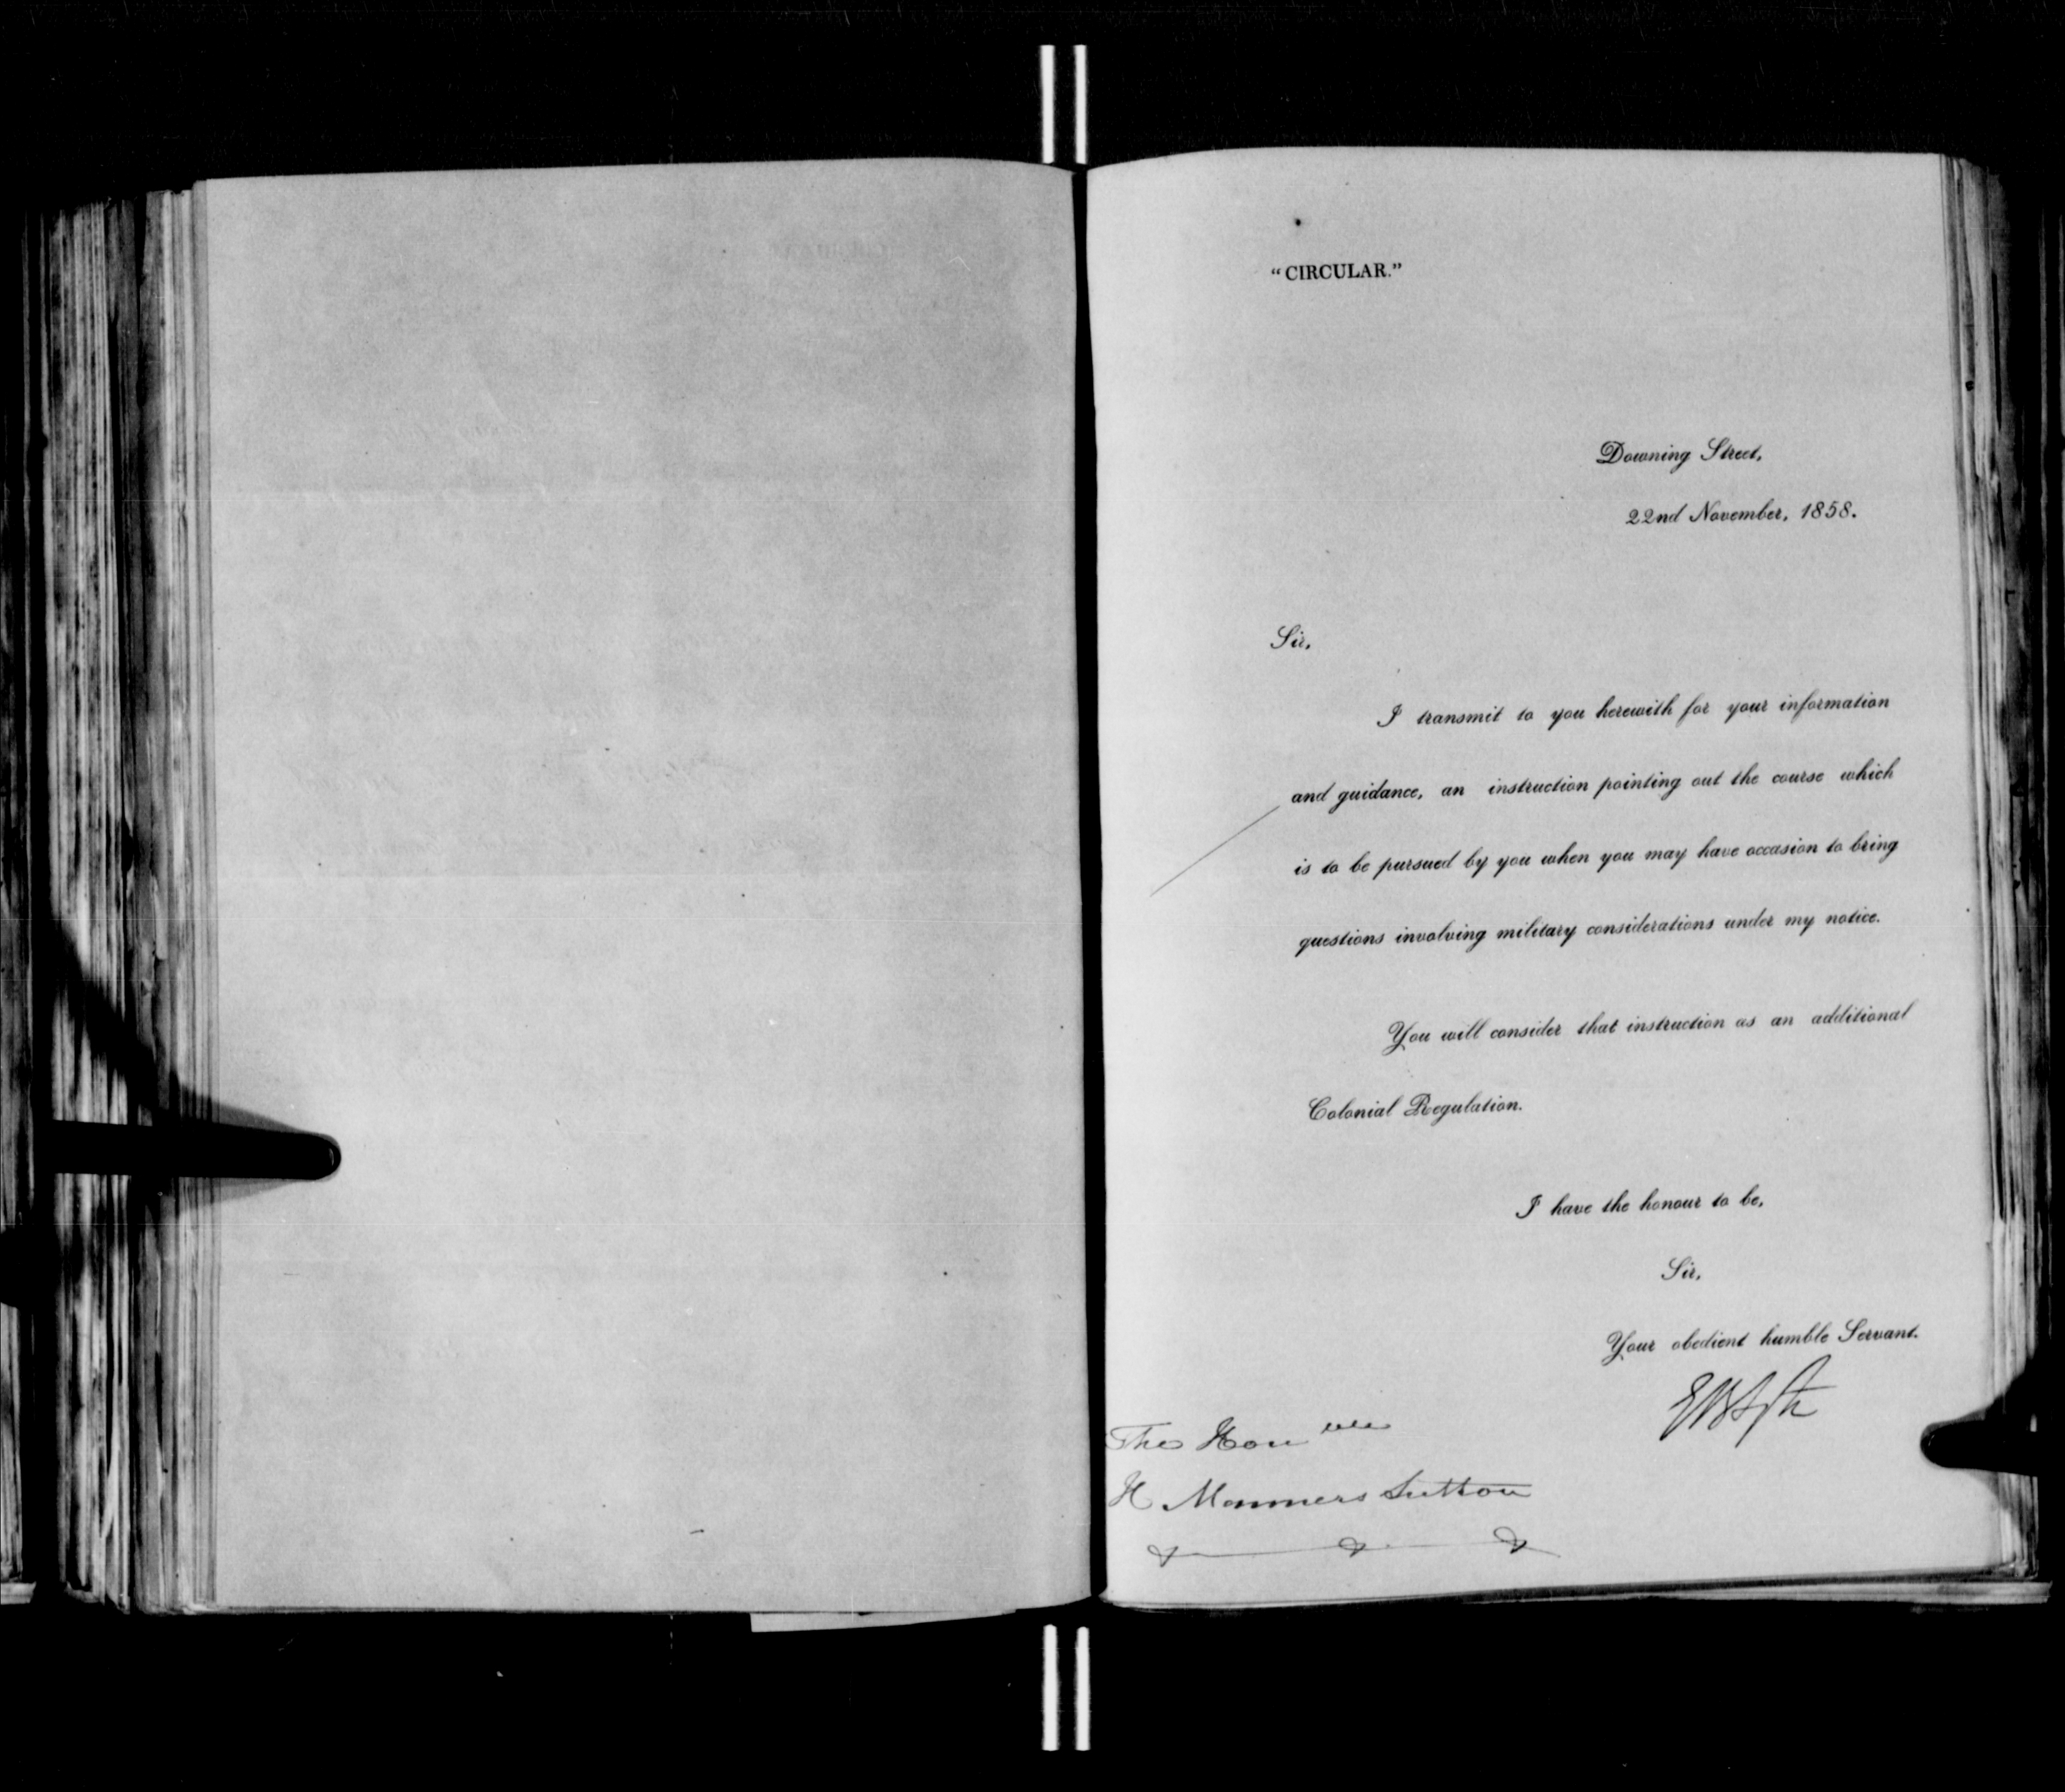 "CIRCULAR."
Downing Street,
22nd November, 1858.
Sir,
I transmit to you herewith for your information
and guidance, an instruction pointing out the course which
is to be pursued by you when you may have occasion to bring
questions involving military considerations under my notice.
You will consider that instruction as an additional
Colonial Regulation.
I have the honour to be,
Sir,
Your obedient humble Servant.
The Honble
H Manners Sutton